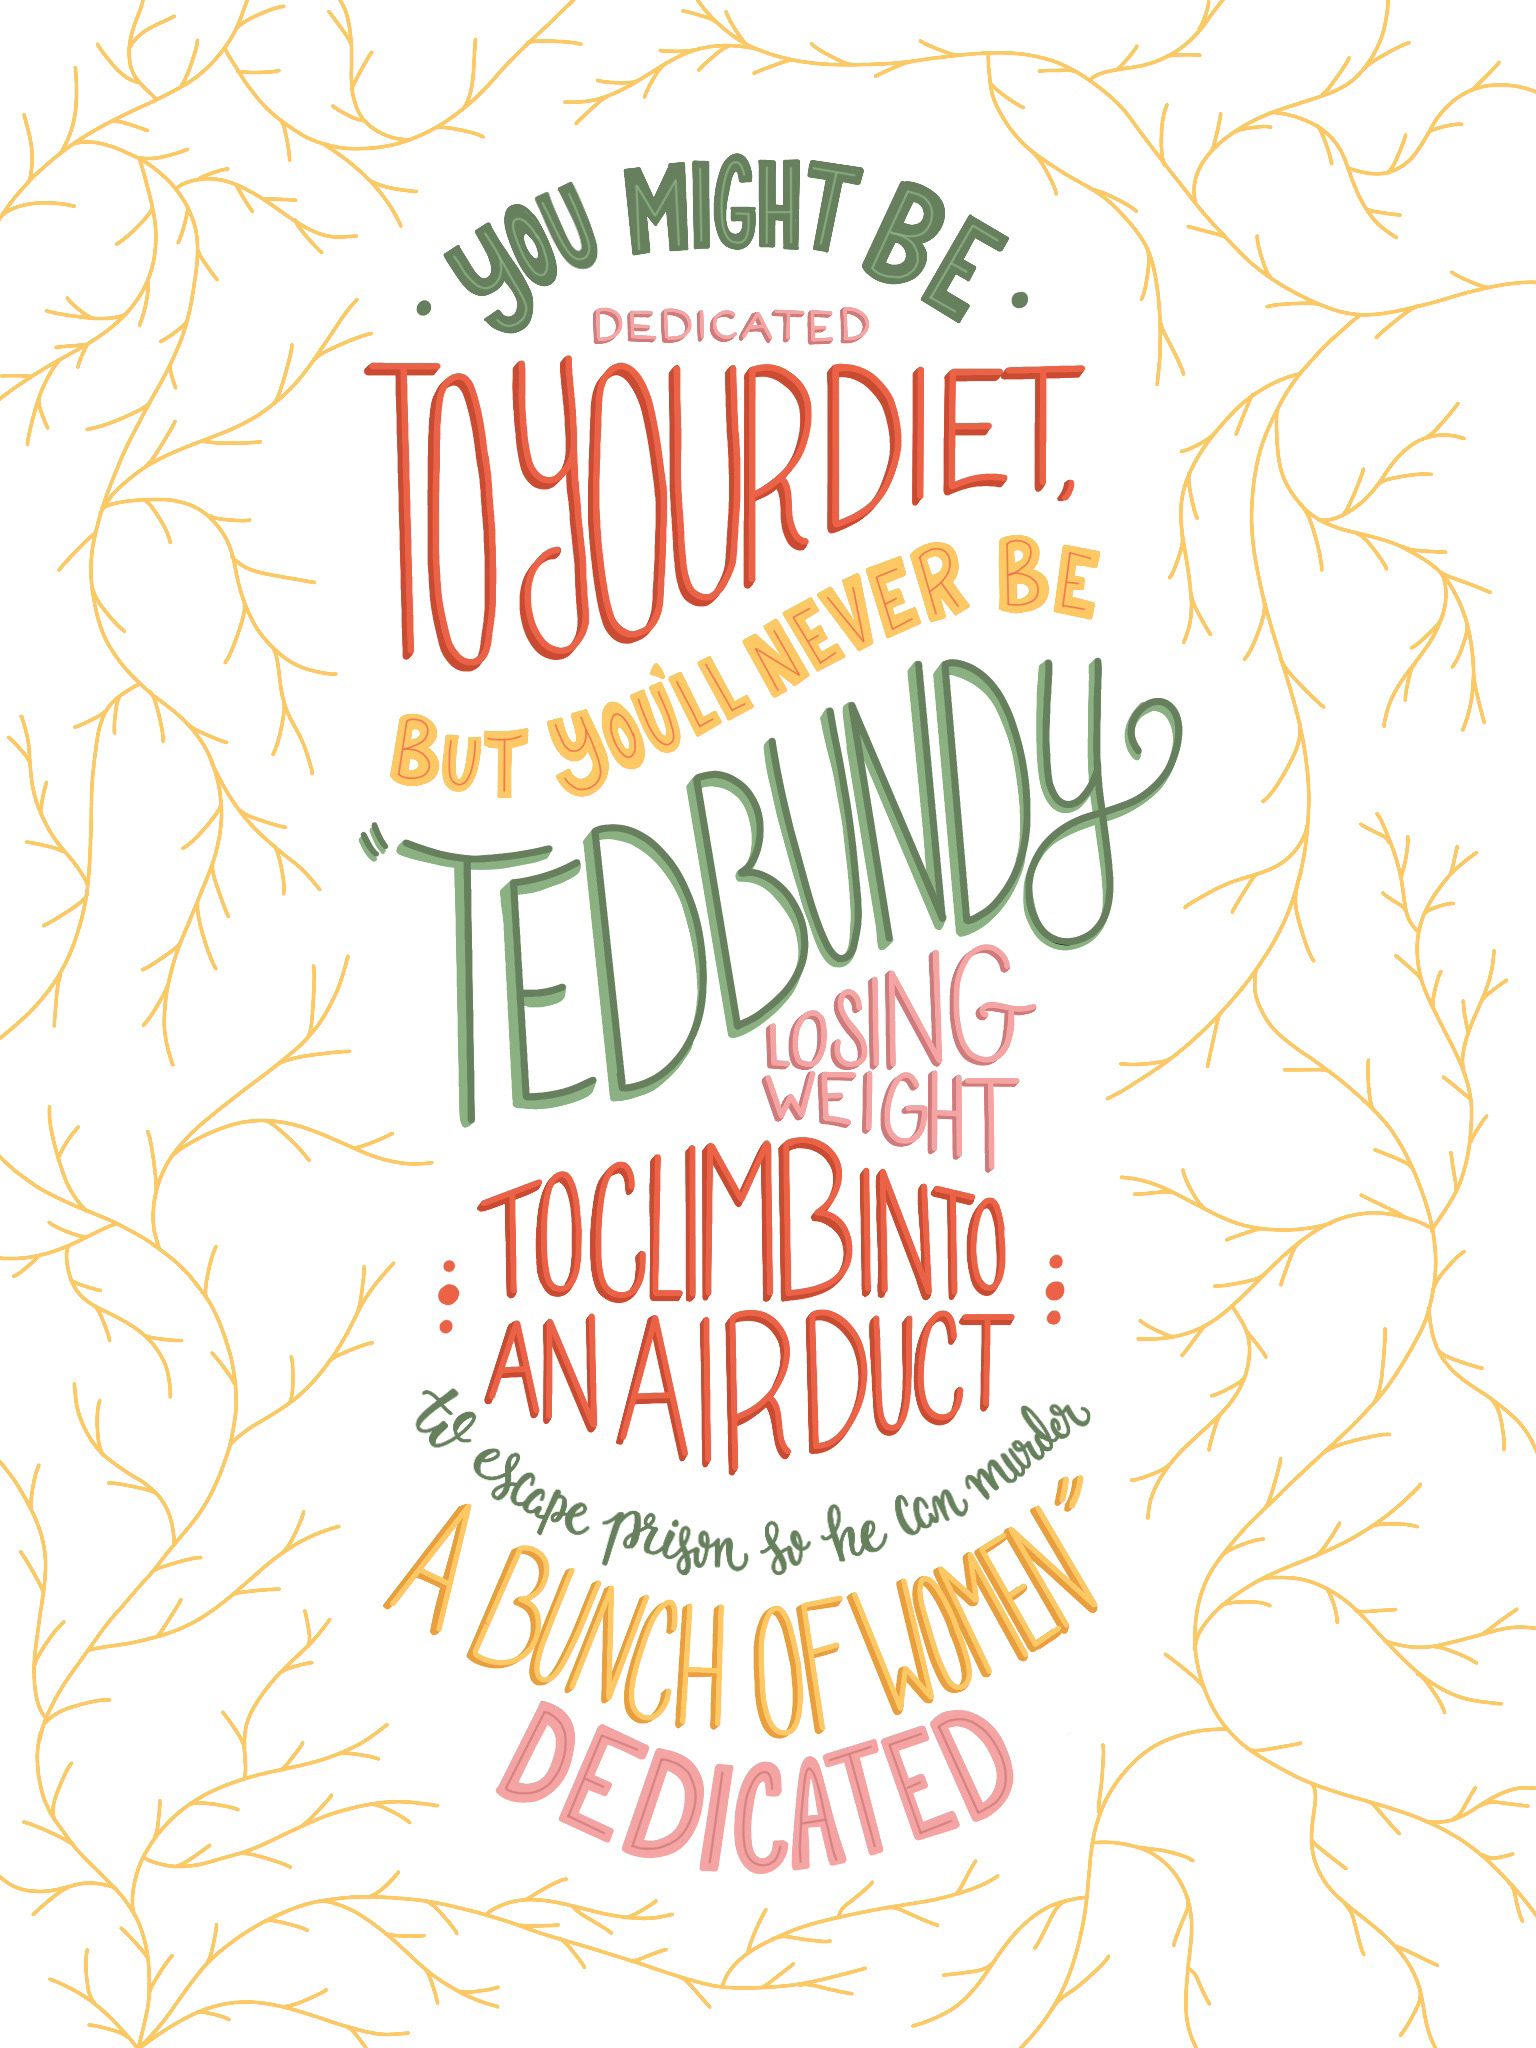 YOU MIGHT BE
DEDICATED
TO YOUR DIET,
BUT YOU'LL NEVER BE
"TED BUNDY
LOSING
WEIGHT
TO CLIMB INTO
AN AIR DUCT
to escape prison so he can murder
A BUNCH OF WOMEN"
DEDICATED